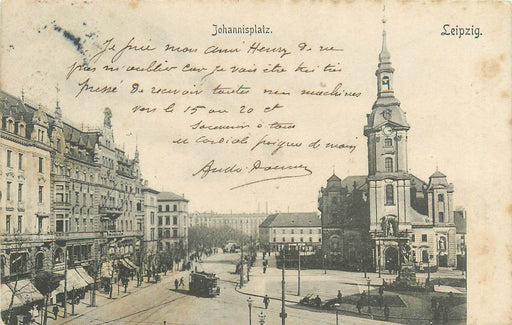 Johannisplatz.
Leipzig.
Je prie mon ami Henry de ne
pas m'oublier car je vais être très
pressé de recevoir toutes mes machines
vers le 15 au 20 ct
Souvenir à tous
et cordiale poignée de main